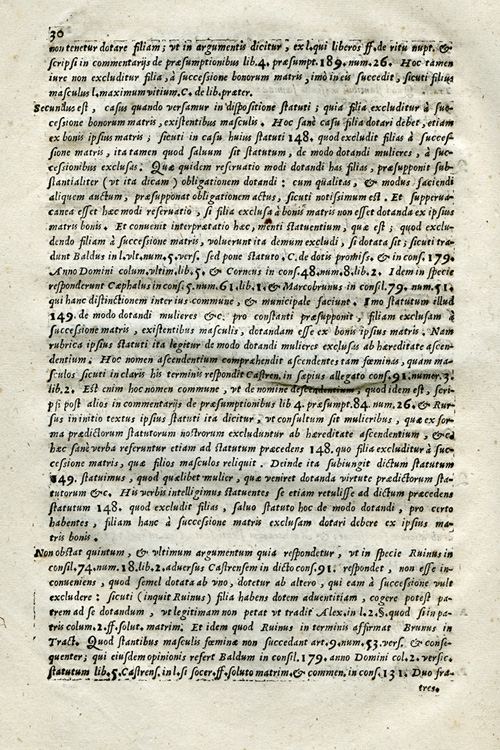 30
non tenetur dotare filiam; vt in argumentis dicitur, ex l. qui liberos ff. de ritu nupt. &
scripsi in commentarijs de præsumptionibus lib. 4. præsumpt. 189. num. 26. Hoc tamen
iure non excluditur filia, à successione bonorum matris, imò in eis succedit, sicuti filius
masculus l. maximum vitium. C. de lib. præter.
Secundus est, casus quando versamur in dispositione statuti; quia filia excluditur à suc-
cessione bonorum matris, existentibus masculis. Hoc sanè casu filia dotari debet, etiam
ex bonis ipsius matris; sicuti in casu huius statuti 148. quod excludit filias à succes-
sione matris, ita tamen quod saluum sit statutum, de modo dotandi mulieres, à suc-
cessionibus exclusas. Quæ quidem reseruatio modi dotandi has filias, præsupponit sub-
stantialiter (vt ita dicam) obligationem dotandi: cum qualitas, & modus faciendi
aliquem auctum, præsupponat obligationem actus, sicuti notissimum est. Et superua-
canea esset hæc modi reseruatio, si filia exclusa à bonis matris non esset dotanda ex ipsius
matris bonis. Et conuenit interpretatio hæc, menti statuentium, quæ est; quod exclu-
dendo filiam à successione matris, voluerunt ita demum excludi, si dotata sit; sicuti tra-
dunt Baldus in l. vlt. num. 5. vers. sed pone statuto. C. de dotis promiss. & in cons. 179.
Anno Domini colum. vltim. lib. 5. & Corneus in cons. 48. num. 8. lib. 2. Idem in specie
responderunt Cæphalus in cons. 5. num. 61. lib. 1. & Marcobrunus in consil. 79. num. 51.
qui hanc distinctionem inter ius commune, & municipale faciunt. Imo statutum illud
149. de modo dotandi mulieres &c. pro constanti præsupponit, filiam exclusam à
successione matris, existentibus masculis, dotandam esse ex bonis ipsius matris. Nam
rubrica ipsius statuti ita legitur de modo dotandi mulieres exclusas ab hæreditate ascen-
dentium. Hoc nomen ascendentium comprehendit ascendentes tam fœminas, quam ma-
sculos sicuti in claris his terminis respondit Castren. in sapius allegato cons. 91. numer. 3.
lib. 2. Est enim hoc nomen commune, vt de nomine descendentium, quod idem est, scri-
psi post alios in commentarijs de præsumptionibus lib. 4. præsumpt. 84. num. 26. & Rur-
sus in initio textus ipsius statuti ita dicitur, vt consultum sit mulieribus, quæ ex for-
ma prædictorum statutorum nostrorum excluduntur ab hæreditate ascendentium, &c.
hæc sanè verba referuntur etiam ad statutum præcedens 148. quo filia excluditur à suc-
cessione matris, quæ filios masculos reliquit. Deinde ita subiungit dictum statutum
149. statuimus, quod quælibet mulier, quæ veniret dotanda virtute prædictorum sta-
tutorum &c. His verbis intelligimus statuentes se etiam retulisse ad dictum præcedens
statutum 148. quod excludit filias, saluo statuto hoc de modo dotandi, pro certo
habentes, filiam hanc à successione matris exclusam dotari debere ex ipsius ma-
tris bonis.
Non obstat quintum, & vltimum argumentum quia respondetur, vt in specie Ruinus in
consil. 74. num. 18. lib. 2. aduersus Castrensem in dicto cons. 91. respondet, non esse in-
conueniens, quod semel dotata ab vno, dotetur ab altero, qui eam à successione vult
excludere: sicuti (inquit Ruinus) filia habens dotem aduentitiam, cogere potest pa-
trem ad se dotandum, vt legitimam non petat vt tradit Alex. in l. 2. §. quod si in pa-
tris colum. 2. ff. solut. matrim. Et idem quod Ruinus in terminis affirmat Brunus in
Tract. Quod stantibus masculis fœminæ non succedant art. 9. num. 53. vers. & conse-
quenter; qui eiusdem opinionis refert Baldum in consil. 179. anno Domini col. 2. versic.
statutum lib. 5. Castrens. in l. si socer. ff. soluto matrim. & commen. in cons. 131. Duo fra-
tres.